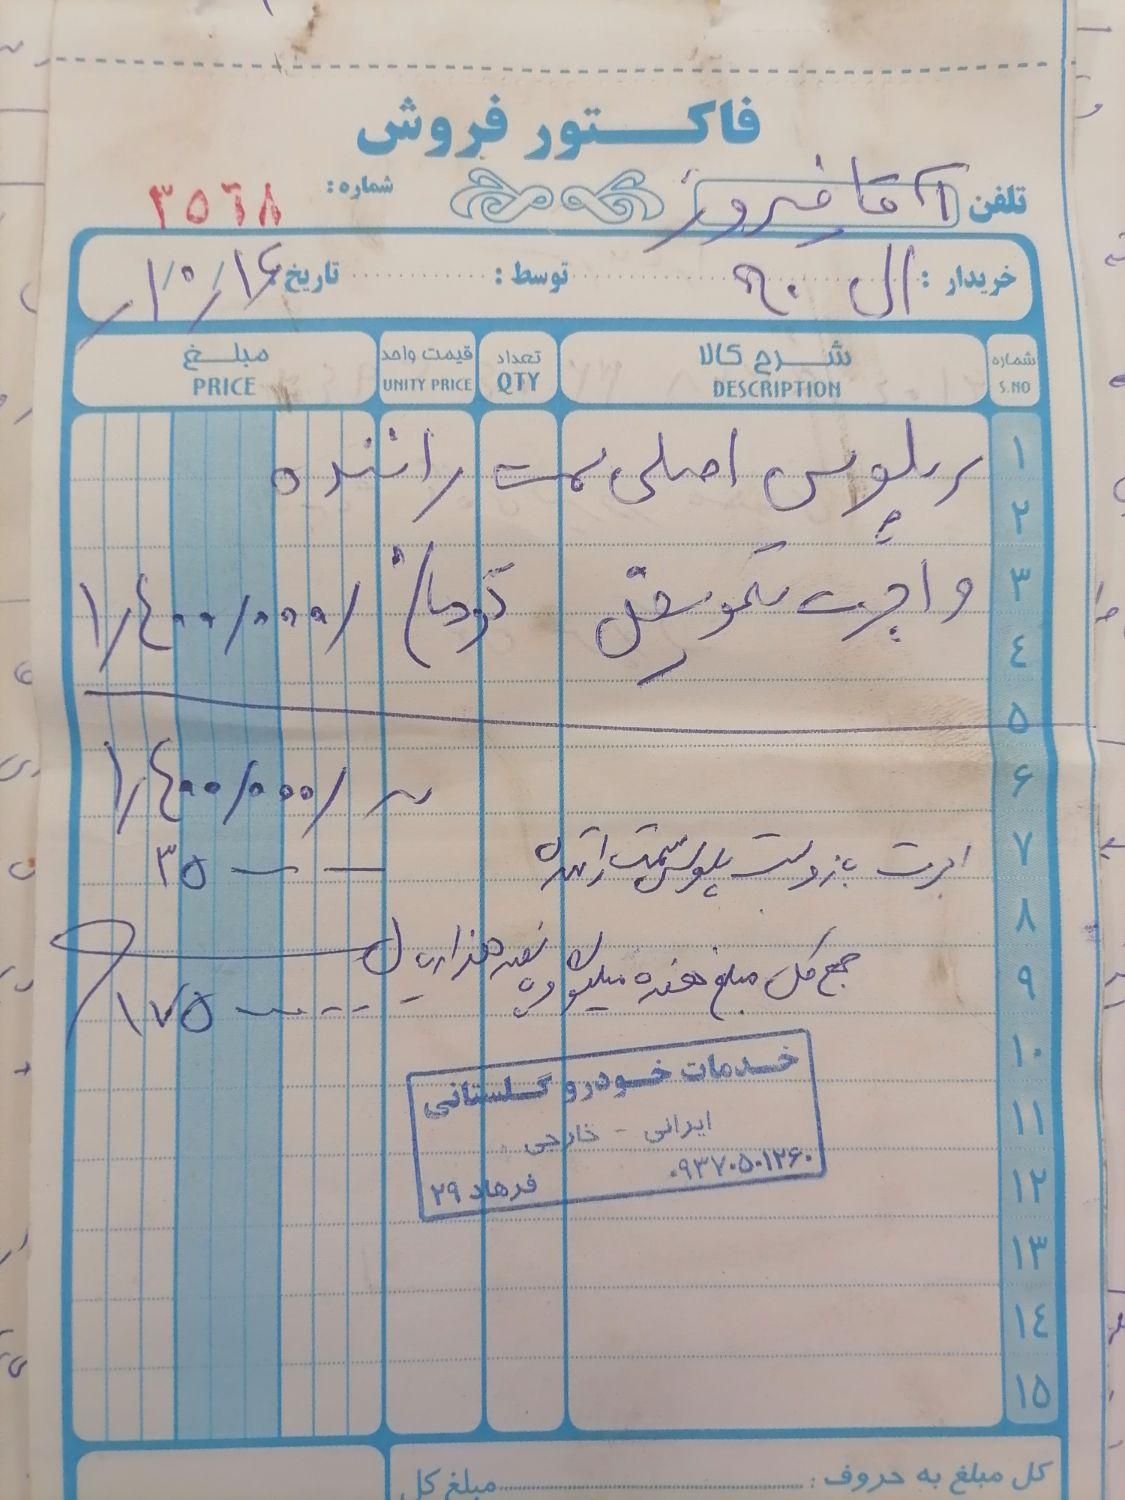 فاکتور فروش
تلفن آقا فیروز شماره: ۳۵۶۸
خریدار: ال ۹۰ توسط: تاریخ: ۱۰/۱۶/
شماره شرح کالا تعداد قیمت واحد مبلغ
S.NO DESCRIPTION QTY UNITY PRICE PRICE
۱ سرپلوس اصلی سمت راننده
۲
۳ و اجرت تعویض تومان ۱/۴۰۰/۰۰۰/
۴
۵
۶ ۱/۴۰۰/۰۰۰/
۷ اجرت باز و بست پلوس سمت راننده ۳۵
۸
۹ جمع کل مبلغ هفده میلیون و پانصد هزار ریال ۱۷۵
۱۰
خدمات خودرو گلستانی
۱۱
ایرانی - خارجی
۱۲
فرهاد ۲۹ ۰۹۳۷۰۵۰۱۲۶۰
۱۳
۱۴
۱۵
کل مبلغ به حروف: مبلغ کل